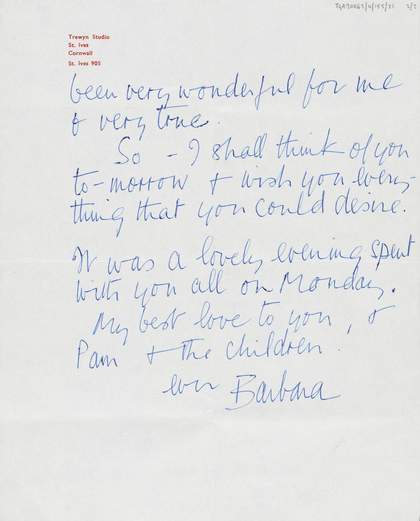 TGA 200625/2/1/55/21 2/2
Trewyn Studio
St. Ives
Cornwall
St. Ives 905
been very wonderful for me
& very true.
So – I shall think of you
to-morrow & wish you every-
thing that you could desire.
It was a lovely evening spent
with you all on Monday.
My best love to you, &
Pam & the children.
ever Barbara